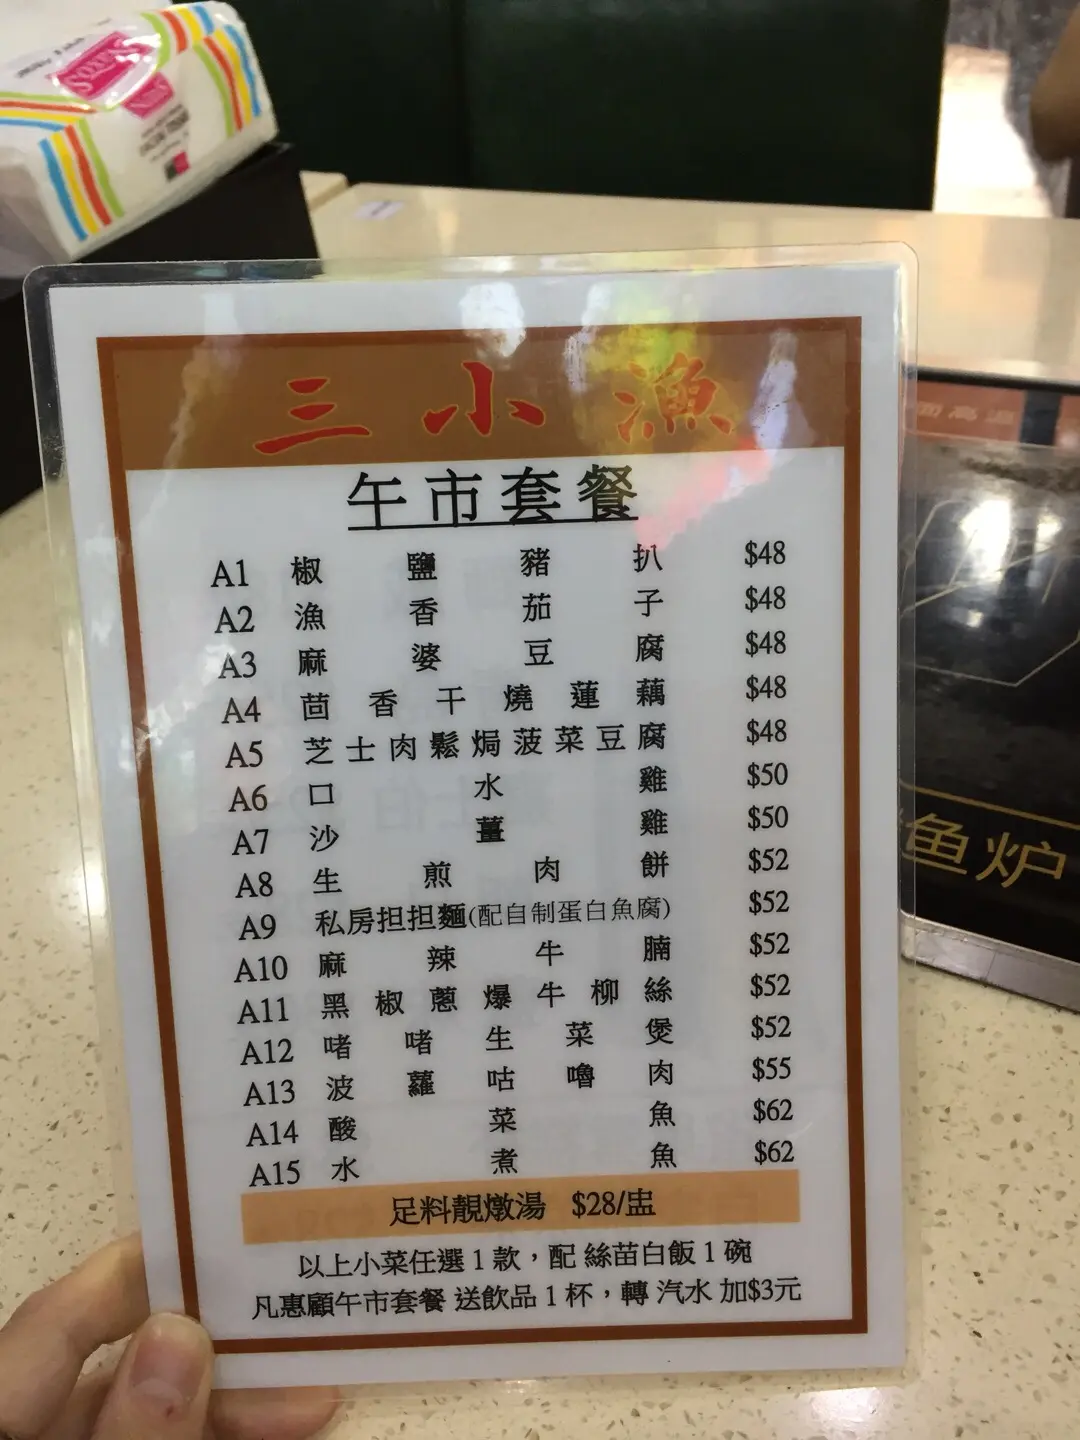 三小漁
午市套餐
A1 椒鹽豬扒 $48
A2 漁香茄子 $48
A3 麻婆豆腐 $48
A4 茴香干燒蓮藕 $48
A5 芝士肉鬆焗菠菜豆腐 $48
A6 口水雞 $50
A7 沙薑雞 $50
A8 生煎肉餅 $52
A9 私房担担麵(配自制蛋白魚腐) $52
A10 麻辣牛腩 $52
A11 黑椒蔥爆牛柳絲 $52
A12 啫啫生菜煲 $52
A13 波蘿咕嚕肉 $55
A14 酸菜魚 $62
A15 水煮魚 $62
足料靚燉湯 $28/盅
以上小菜任選1款，配 絲苗白飯1碗
凡惠顧午市套餐 送飲品1杯，轉 汽水 加$3元
鱼炉